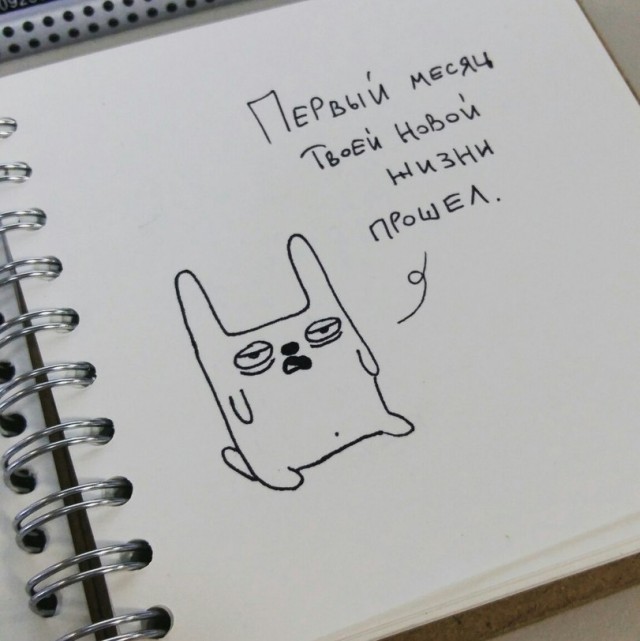 Первый месяц
твоей новой
жизни
прошел.